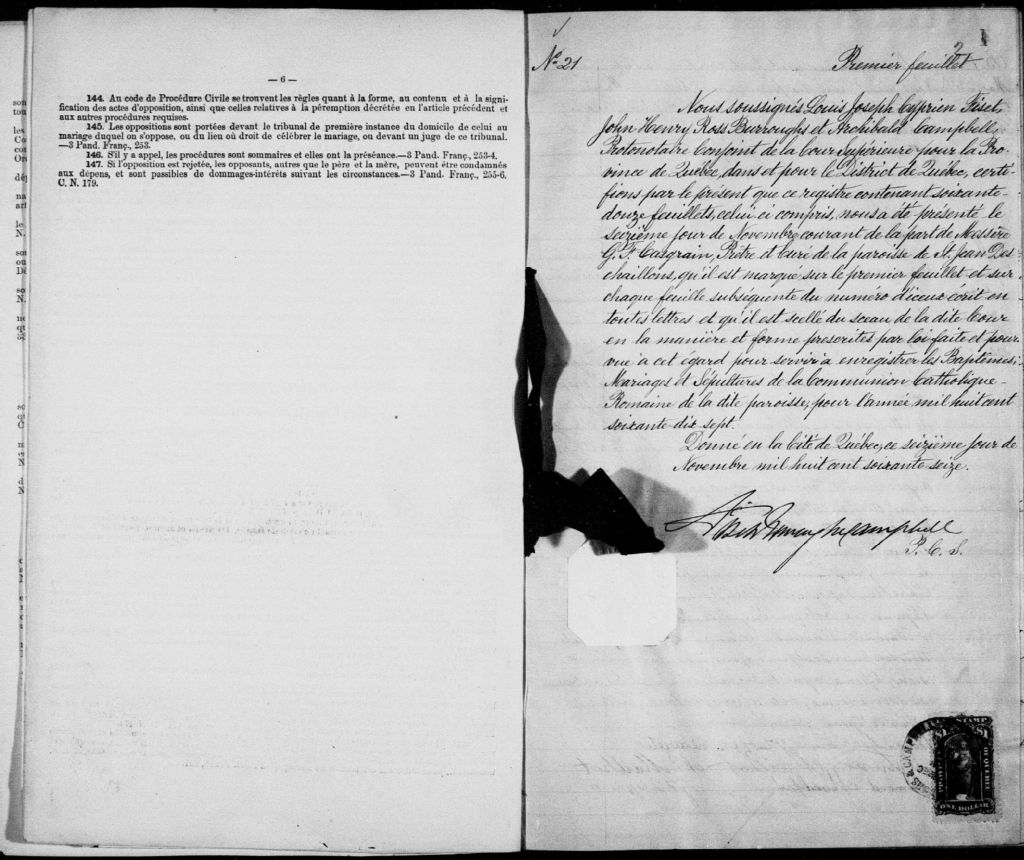 — 6 —
144. Au code de Procédure Civile se trouvent les règles quant à la forme, au contenu et à la signi-
fication des actes d'opposition, ainsi que celles relatives à la péremption décrétée en l'article précédent et
aux autres procédures requises.
145. Les oppositions sont portées devant le tribunal de première instance du domicile de celui au
mariage duquel on s'oppose, ou du lieu où droit de célébrer le mariage, ou devant un juge de ce tribunal.
—3 Pand. Franç., 253.
146. S'il y a appel, les procédures sont sommaires et elles ont la préséance.—3 Pand. Franç., 253-4.
147. Si l'opposition est rejetée, les opposants, autres que le père et la mère, peuvent être condamnés
aux dépens, et sont passibles de dommages-intérêts suivant les circonstances.—3 Pand. Franç., 255-6,
C. N. 179.
No. 21
Premier feuillet
Nous soussignés Louis Joseph Cyprien Fiset,
John Henry Ross Burroughs et Archibald Campbell,
Protonotaire Conjoint de la Cour Supérieure pour la Pro-
vince de Québec, dans et pour le District de Québec, certi-
fions par le présent que ce registre contenant soixante-
douze feuillets, celui ci compris, nous a été présenté le
seizième jour de Novembre courant de la part de Messire
G. F. Casgrain, Prêtre et Curé de la paroisse de St. Jean Des
chaillons, qu'il est marqué sur le premier feuillet et sur
chaque feuille subséquente du numéro d'iceux écrit en
toutes lettres et qu'il est scellé du sceau de la dite Cour
en la manière et forme prescrites par loi faite et pour
vue à cet égard pour servir à enregistrer les Baptêmes,
Mariages et Sépultures de la Communion Catholique-
Romaine de la dite paroisse, pour l'année mil huit cent
soixante dix sept.
Donné en la Cité de Québec, ce seizième jour de
Novembre mil huit cent soixante seize.
Campbell
P. C. S.
STAMP
$1 $1
PROVINCE OF QUEBEC
ONE DOLLAR